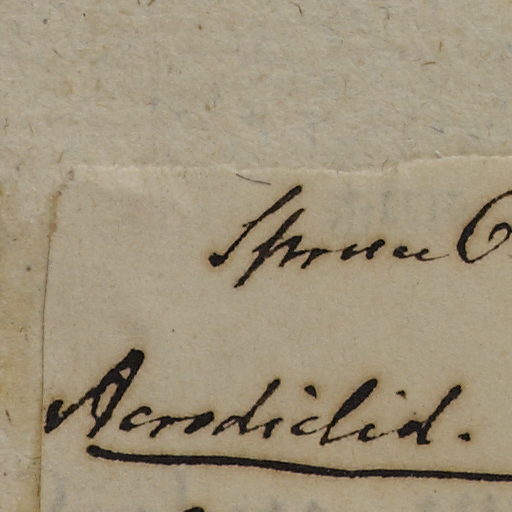 Spruce
Acrodiclid.